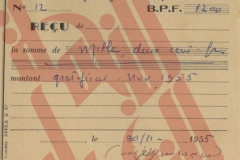 No 12 B.P.F. 1200
REÇU de
la somme de Mille deux cent frs
montant gratification Nov. 1955
le 30/11 - 1955